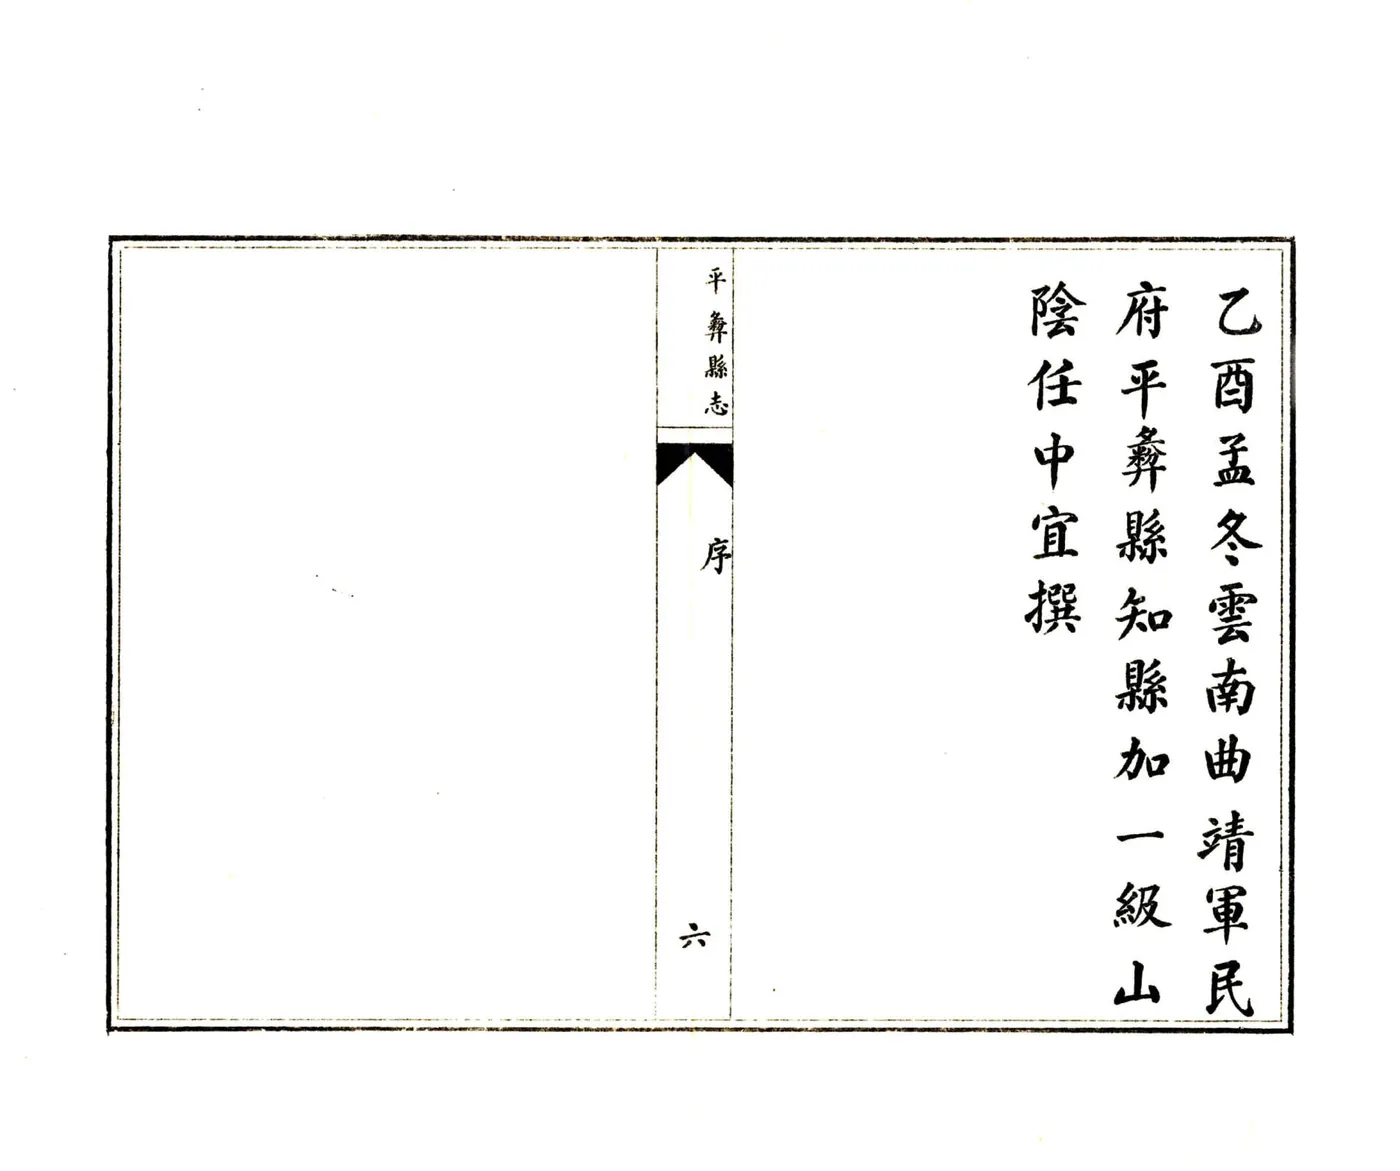 乙酉孟冬雲南曲靖軍民
府平彝縣知縣加一級山
陰任中宜撰
平彝縣志
序
六